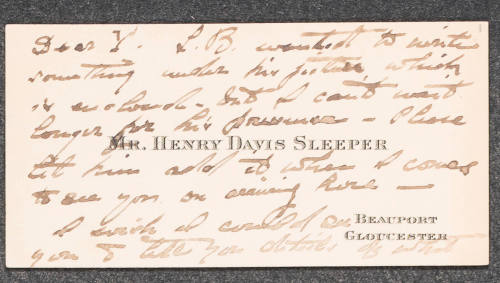 Dear Y. L.B. wanted to write
something under his picture which
is enclosed - but I can't wait
longer for his presence - Please
MR. HENRY DAVIS SLEEPER
let him add it when I comes
to see you on arriving here —
BEAUPORT
I wish I could see
GLOUCESTER
you to tell you details of what